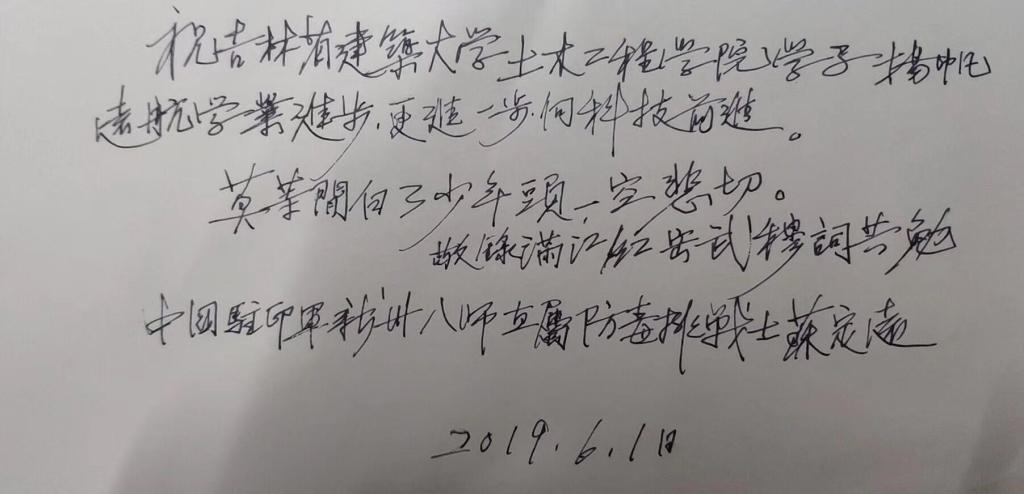 祝吉林省建築大学土木工程学院学子揚帆
遠航学業進步,更進一步向科技前進。
莫等閒白了少年頭,空悲切。
敬錄滿江紅岳武穆詞共勉
中國駐印軍新卅八師直屬防毒排戰士蘇定遠
2019.6.1日